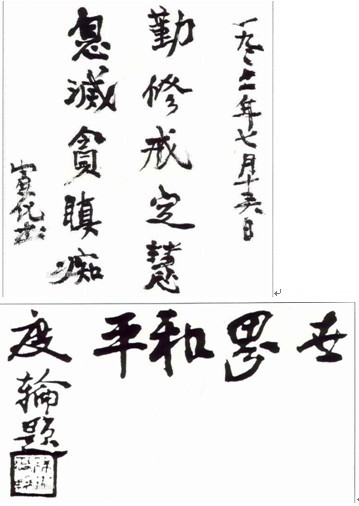 一九年七月十日
勤修戒定慧
息滅貪瞋痴
宣化
世界和平
度輪題